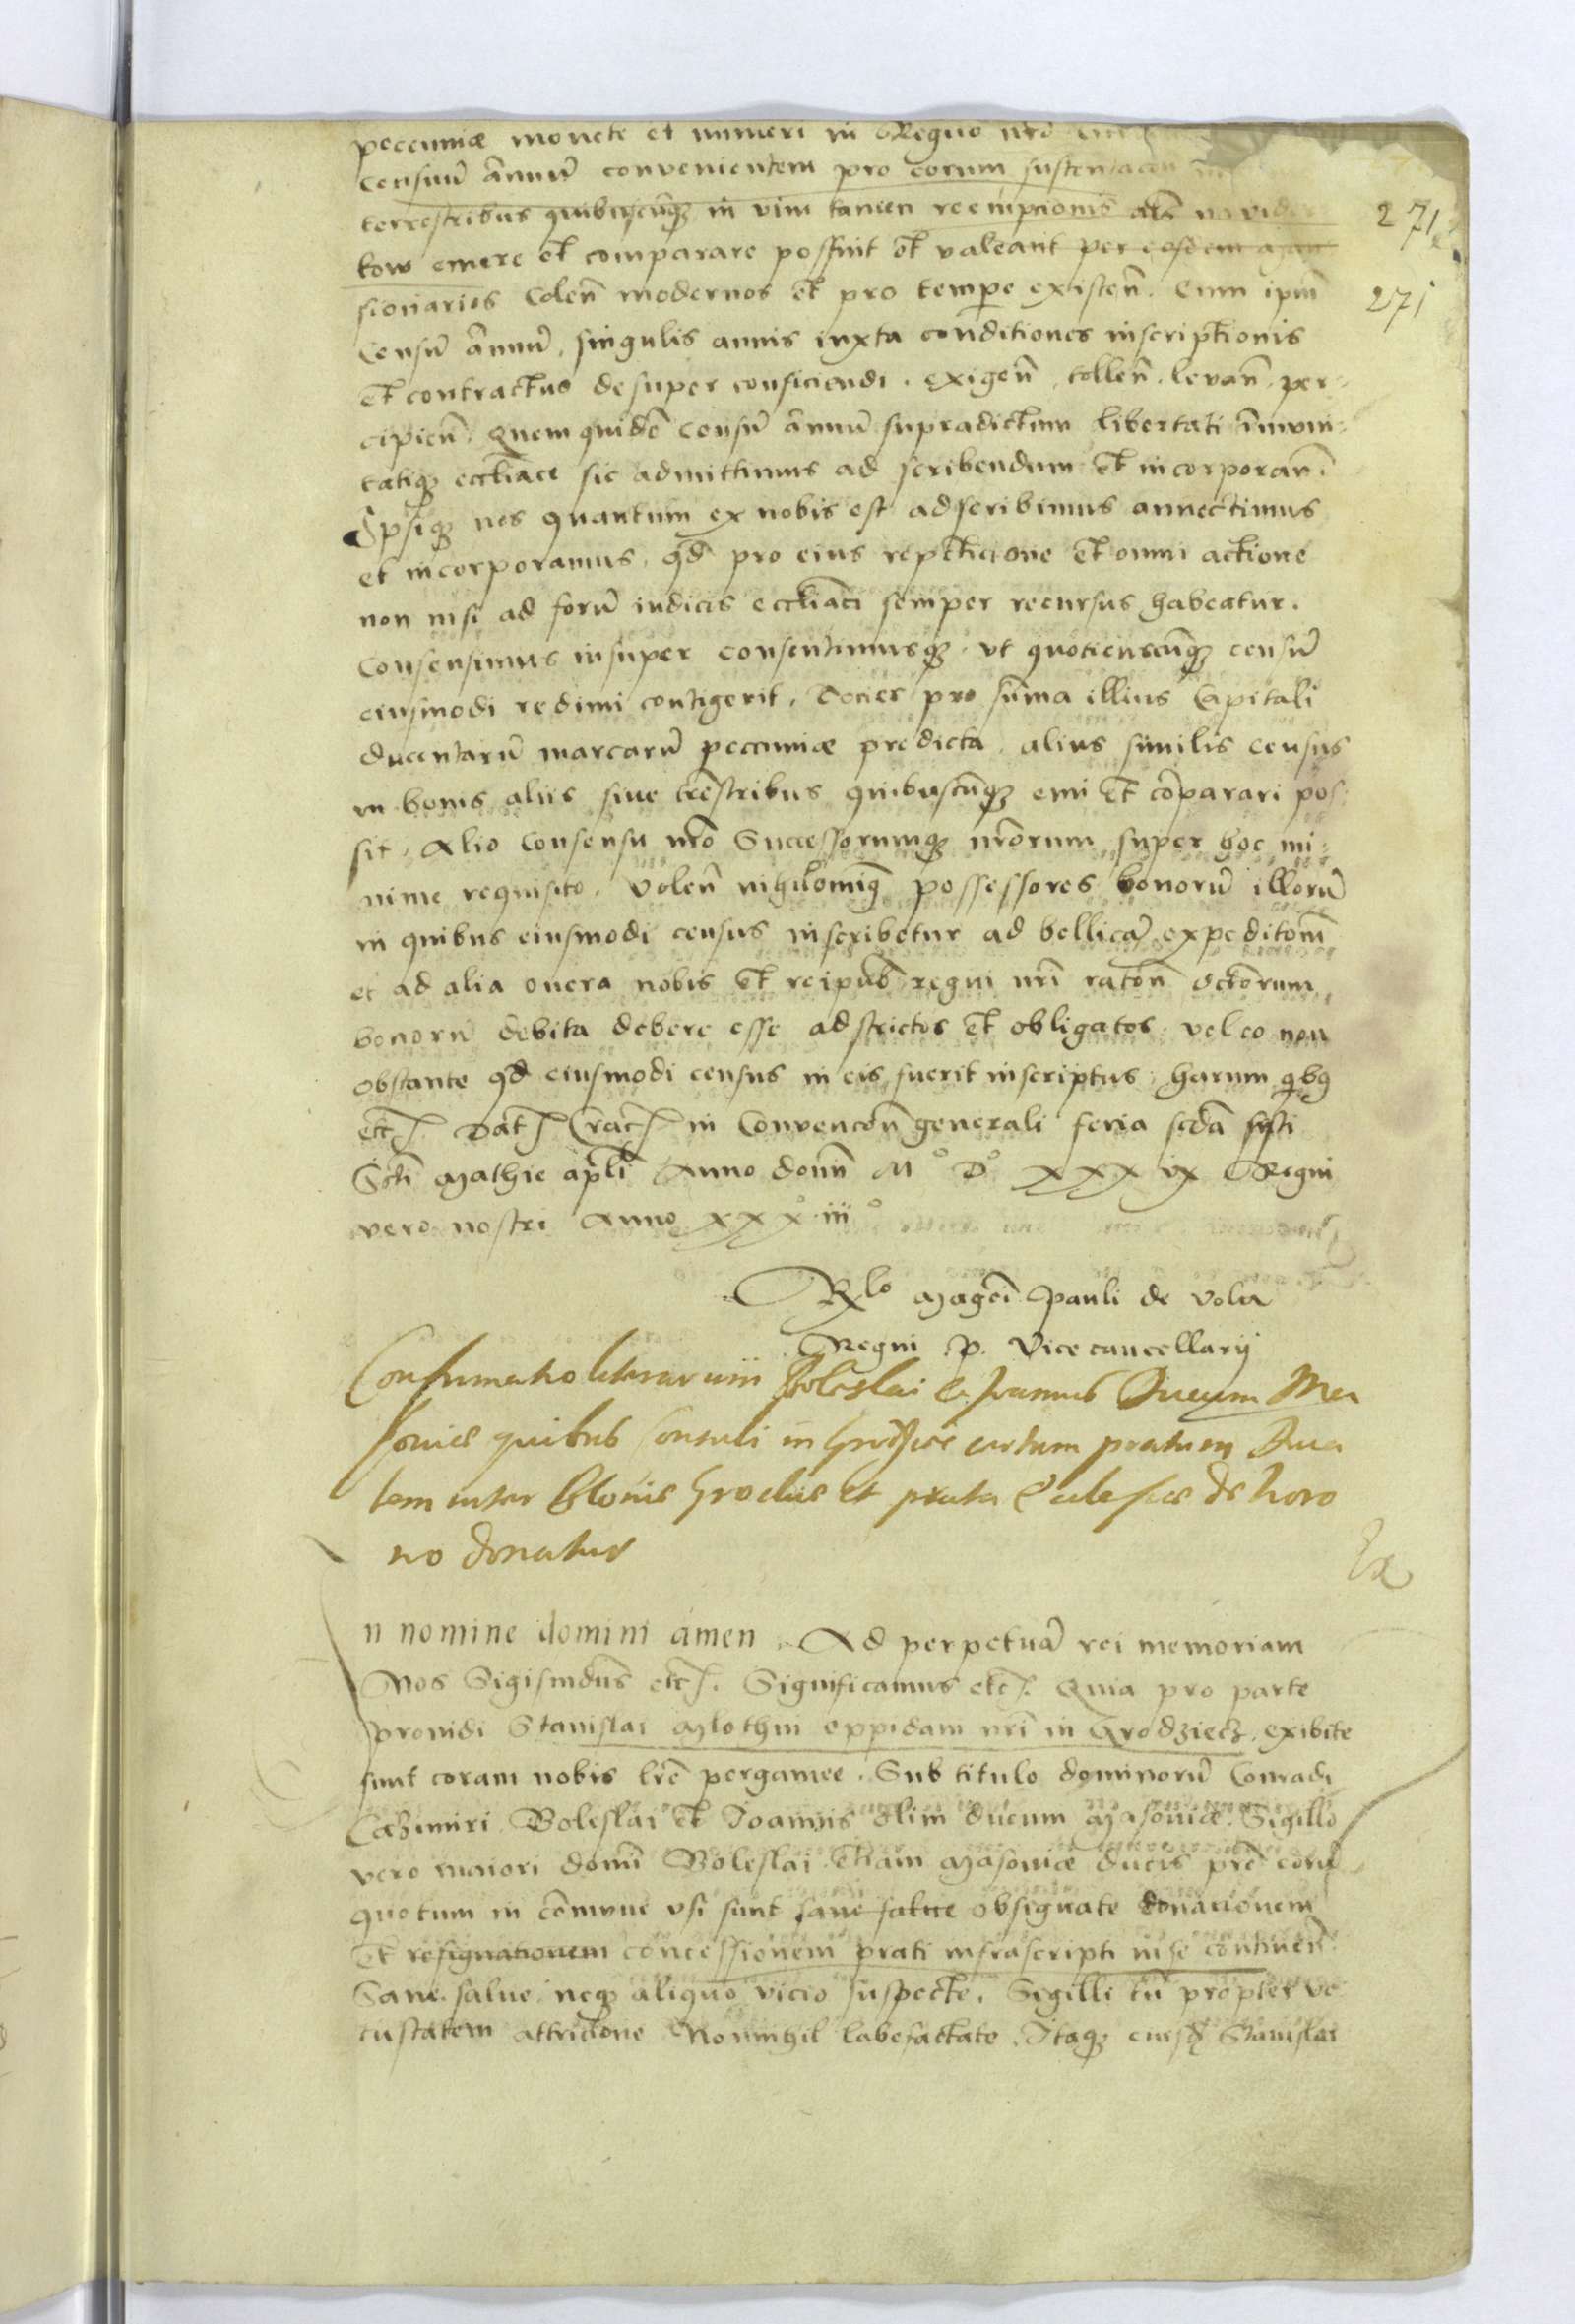 peccuniæ monete et numeri in Regno nrō
censuū ānnuū convenientem pro eorum sustentacōn
terrestribus quibuscūq; in vim tamen reempcionis al̄s
271
tow emere et comparare possint et valeant per eosdem man
sionarios Colen̄ modernos et pro tempe existen̄. Eum ipm̄
271
Censū ānnuū, singulis annis iuxta conditiones inscriptionis
et contractus desuper conficiendi. exigen̄, tollen̄. levan̄. per-
cipien̄. Quem quidē censū ānnuū supradictum libertati īmuni-
tatiq; eccl̄iace sic admittimus ad scribendum et incorporan̄.
Ipsiq; nos quantum ex nobis est adscribimus annectimus
et incorporamus, qd̄ pro eius repeticione et omni actione
non nisi ad forū iudicis eccl̄iaci semper recursus habeatur.
Consensimus insuper consentimusq; vt quotienscūq; censū
eiusmodi redimi contigerit. Tocies pro sūma illius Capitali
ducentarū marcarū peccuniæ predicta. alius similis census
in bonis aliis sive trēstribus quibuscūq; emi et cōparari pos-
sit. Alio consensu nrō Successorumq; nrōrum super hoc mi-
nime requisito. Volen̄ nihilomin9 possessores bonorū illorū
in quibus eiusmodi census inscribetur ad bellicā expeditōm̄
et ad alia onera nobis et reipub̄ regni nrī ratōn̄ dictōrum
bonorū debita debere esse adstrictos et obligatos. vel eo non
obstante qd̄ eiusmodi census in eis fuerit inscriptus. harum qb9
etc. Dat Crac in Convencōn̄ generali feria scdā festi
Scti Mathie apl̄i Anno domī M° D° xxxix Regni
vero nostri Anno xxxiii°
Rlo Magcī Pauli de Vola
Regni P. Vicecancellarij
Confirmatio literarum Boleslai et Joannis Ducum Ma
soviæ quibus Consuli in Grodziec certum pratum
tem inter Blonie Grodzie et prata de Woro
no donatur
Ex
n nomine domini amen. Ad perpetuā rei memoriam
Nos Sigismdus etc. Significamus etc. Quia pro parte
providi Stanislai Mlothni oppidani nrī in Grodziecz. exibite
sunt coram nobis lrē pergamee. Sub titulo dominorū Conradi
Cazimiri Boleslai et Joannis olim ducum Masoviæ. Sigillo
vero maiori domī Boleslai etiam Masoviæ ducis prē eorū
quotum in cōmune vsi sunt sane salve obsignate donacionem
et resignationem concessionem prati infrascripti in se continen̄.
Sane salve neq; aliquo vicio suspecte. Sigilli tū propter ve
tustatem attricione Nonnihil labefactate. Itaq; eiusd Stanislai